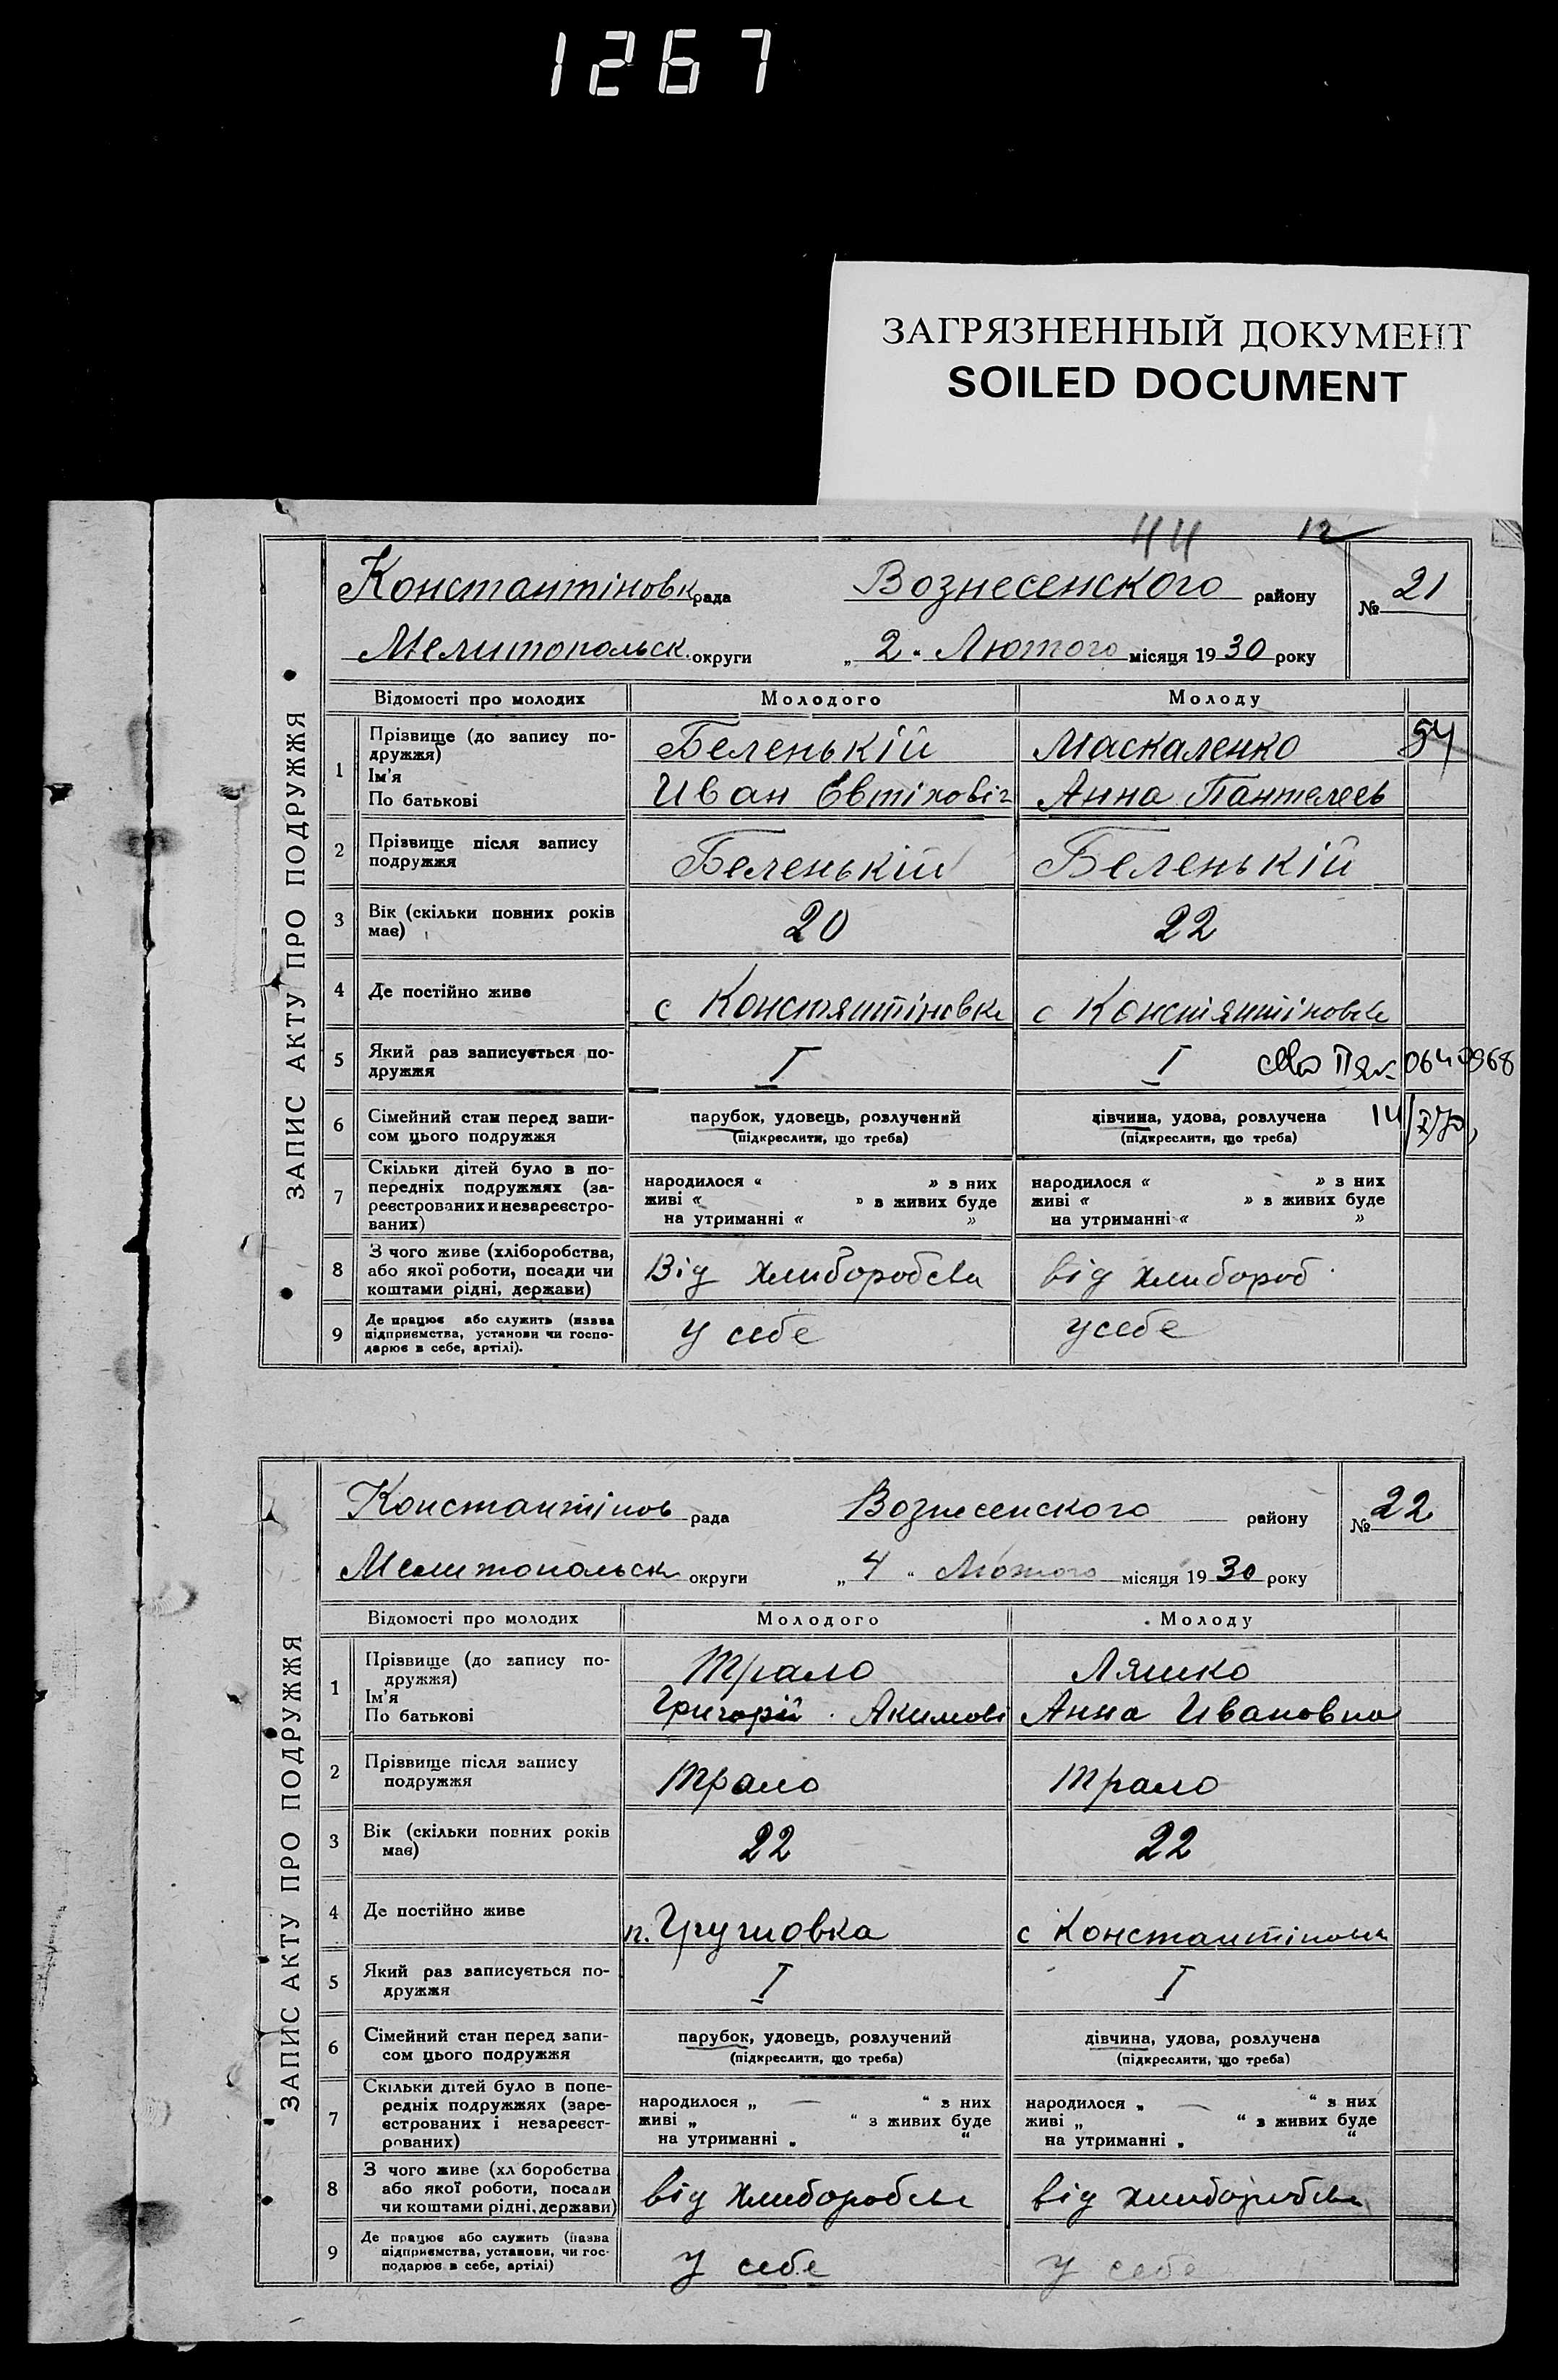 1267
ЗАГРЯЗНЕННЫЙ ДОКУМЕНТ
SOILED DOCUMENT
44 12
ЗАПИС АКТУ ПРО ПОДРУЖЖЯ
Константіновк рада Вознесенского району № 21
Мелитопольск. округи „ 2 " Лютого місяця 1930 року
Відомості про молодих Молодого Молоду
1 Прізвище (до запису по-
дружжя)
Ім'я
По батькові
Беленькій Маскаленко 54
Иван Евтіховіч Анна Пантелеев
2 Прізвище після запису
подружжя
Беленькій Беленькій
3 Вік (скільки повних років
має)
20 22
4 Де постійно живе
с Констянтіновке с Констянтіновке
5 Який раз записується по-
дружжя
I I 0640968
6 Сімейний стан перед запи-
сом цього подружжя
парубок, удовець, розлучений дівчина, удова, розлучена
(підкреслити, що треба) (підкреслити, що треба)
7 Скільки дітей було в по-
передніх подружжях (за-
реєстрованих и незареєстро-
ваних)
народилося « » з них народилося « » з них
живі « » з живих буде живі « » з живих буде
на утриманні « » на утриманні « »
8 З чого живе (хліборобства,
або якої роботи, посади чи
коштами рідні, держави)
Від хлиборобства від хлибороб
9 Де працює або служить (назва
підприємства, установи чи госпо-
дарює в себе, артілі).
У себе у себе
ЗАПИС АКТУ ПРО ПОДРУЖЖЯ
Константінов рада Вознесенского району № 22
Мелитопольск округи „ 4 " Лютого місяця 1930 року
Відомості про молодих Молодого Молоду
1 Прізвище (до запису по-
дружжя)
Ім'я
По батькові
Трало Ляшко
Григорій Акимові Анна Ивановна
2 Прізвище після запису
подружжя
Трало Трало
3 Вік (скільки повних років
має)
22 22
4 Де постійно живе
с Константіновк
5 Який раз записується по-
дружжя
I I
6 Сімейний стан перед запи-
сом цього подружжя
парубок, удовець, розлучений дівчина, удова, розлучена
(підкреслити, що треба) (підкреслити, що треба)
7 Скільки дітей було в попе-
редніх подружжях (заре-
єстрованих і незареєст-
рованих)
народилося „ — " з них народилося „ — " з них
живі „ " з живих буде живі „ " з живих буде
на утриманні „ " на утриманні „ "
8 З чого живе (хл боробства
або якої роботи, посади
чи коштами рідні, держави)
від хлиборобства від хлиборобства
9 Де працює або служить (назва
підприємства, установи, чи гос-
подарює в себе, артілі)
У себе У себе